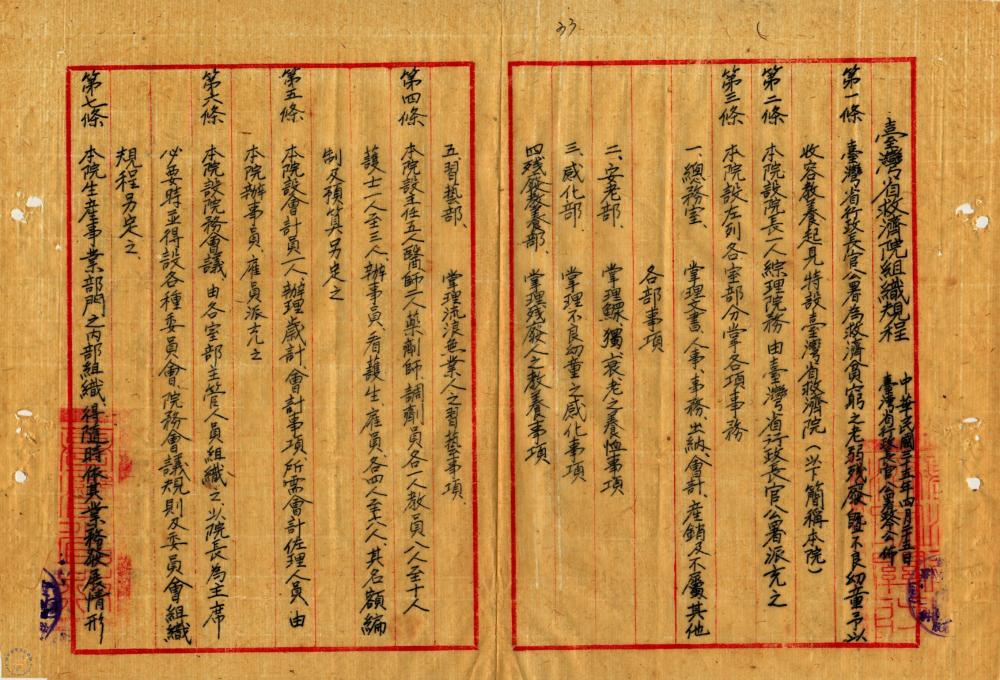 33
臺灣省救濟院組織規程
中華民國三五年四月廿五日
臺灣省行政長官公署公佈
第一條　臺灣省行政長官公署為救濟貧窮之老弱殘廢暨不良幼童予以
收容教養起見特設臺灣省救濟院(以下簡稱本院)
第二條　本院設院長一人綜理院務由臺灣省行政長官公署派充之
第三條　本院設左列各室部分掌各項事務
一、總務室、掌理文書、人事、事務、出納、會計、產銷及不屬其他
各部事項
二、安老部、掌理鰥獨衰老之養恤事項
三、感化部、掌理不良幼童之感化事項
四殘廢教養部、掌理殘廢人之教養事項
五、習藝部、掌理流浪無業人之習藝事項
第四條　本院設主任五人醫師二人藥劑師調劑員各一人教員八人至十人
護士二人至三人辦事員、看護生、雇員各四人至六人其名額編
制及預算另定之
第五條　本院設會計員一人辦理歲計、會計事項所需會計佐理人員由
本院辦事員、雇員派充之
第六條　本院設院務會議由各室部主管人員組織之以院長為主席
必要時並得設各種委員會、院務會議規則及委員會組織
規程另定之
第七條　本院生產事業部門之內部組織得隨時依其業務發展情形